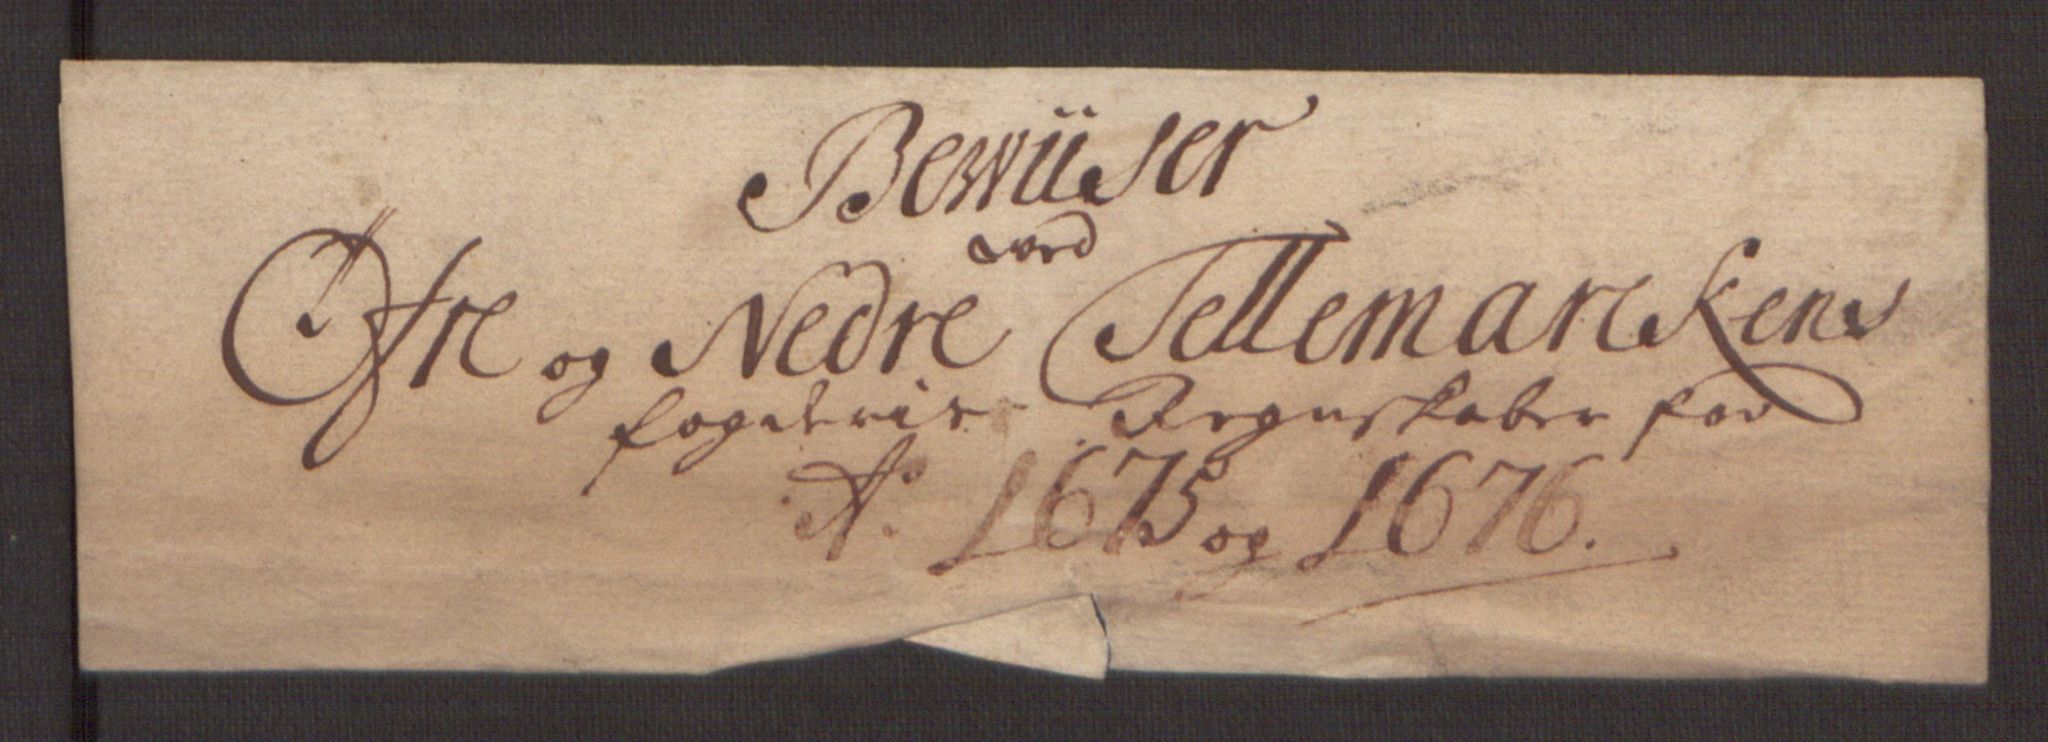 Bewiiser
ved
Øfre og Nedre Tellemarckens
fogderie Regnskaber for
A⁰. 1675 og 1676.